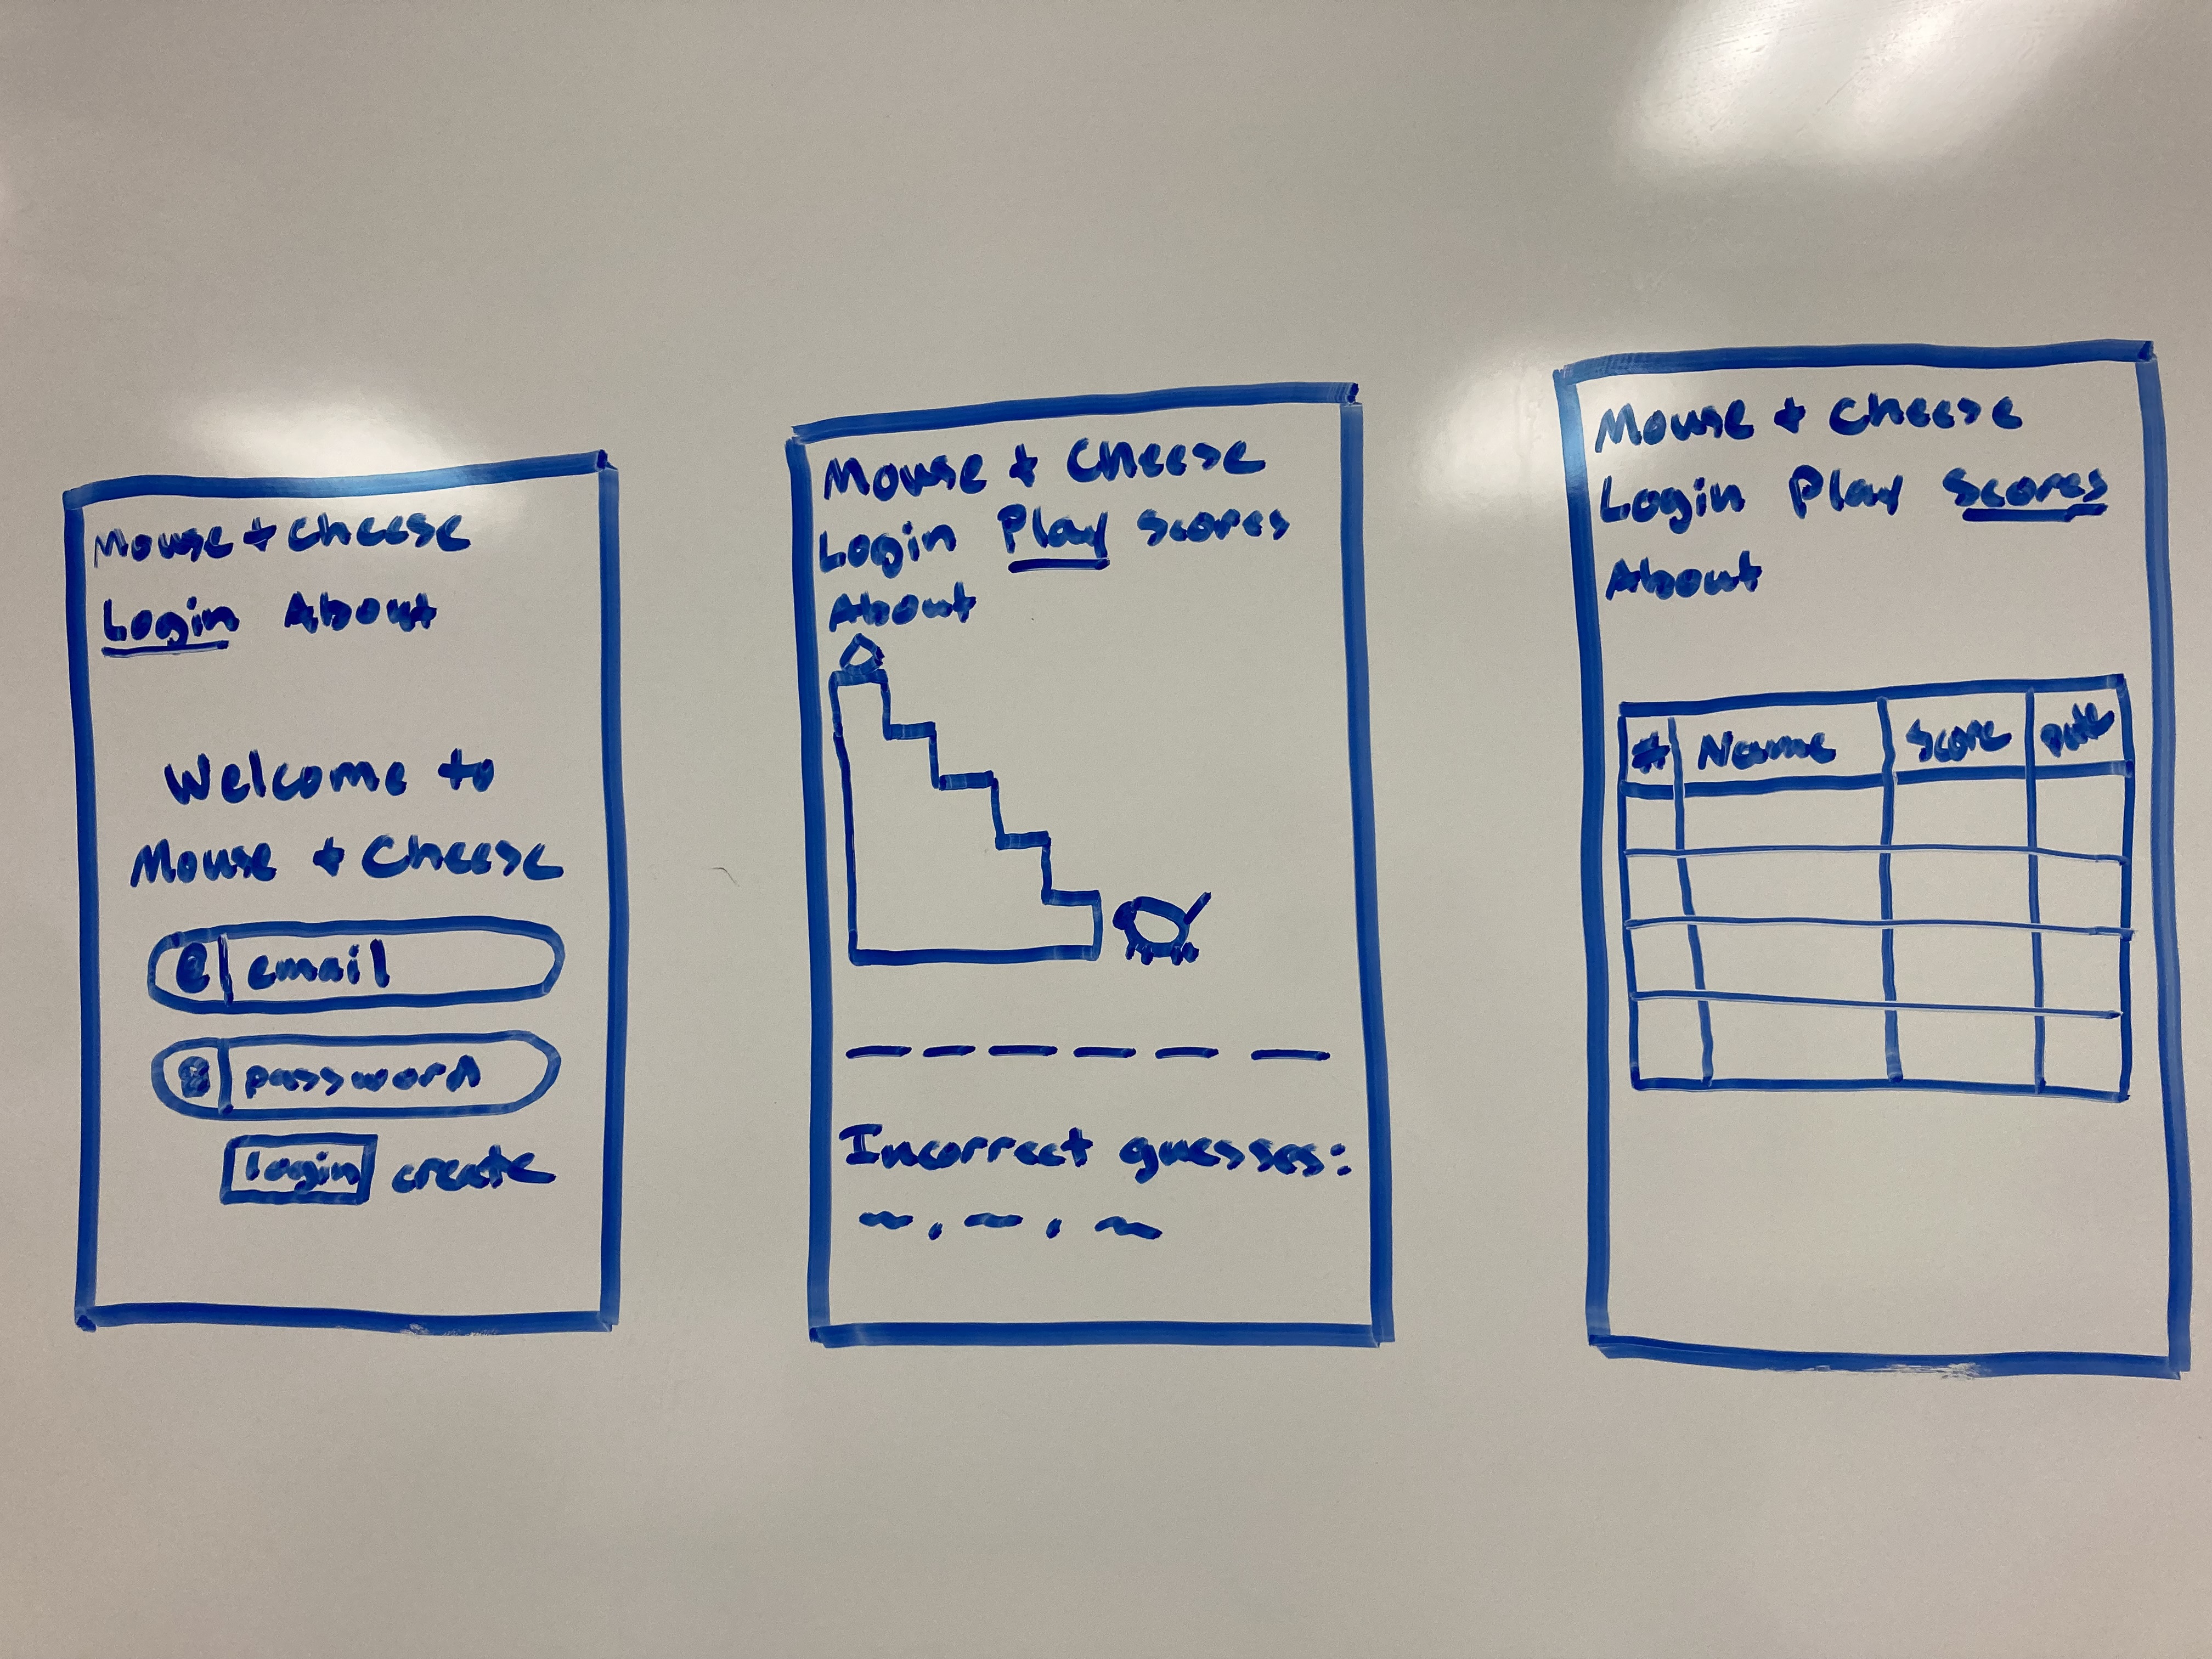 Mouse + Cheese
Login About
Welcome to
Mouse + Cheese
@ email
password
login create
Mouse + Cheese
Login Play Scores
About
Incorrect guesses:
Mouse + Cheese
Login Play Scores
About
# Name Score Date